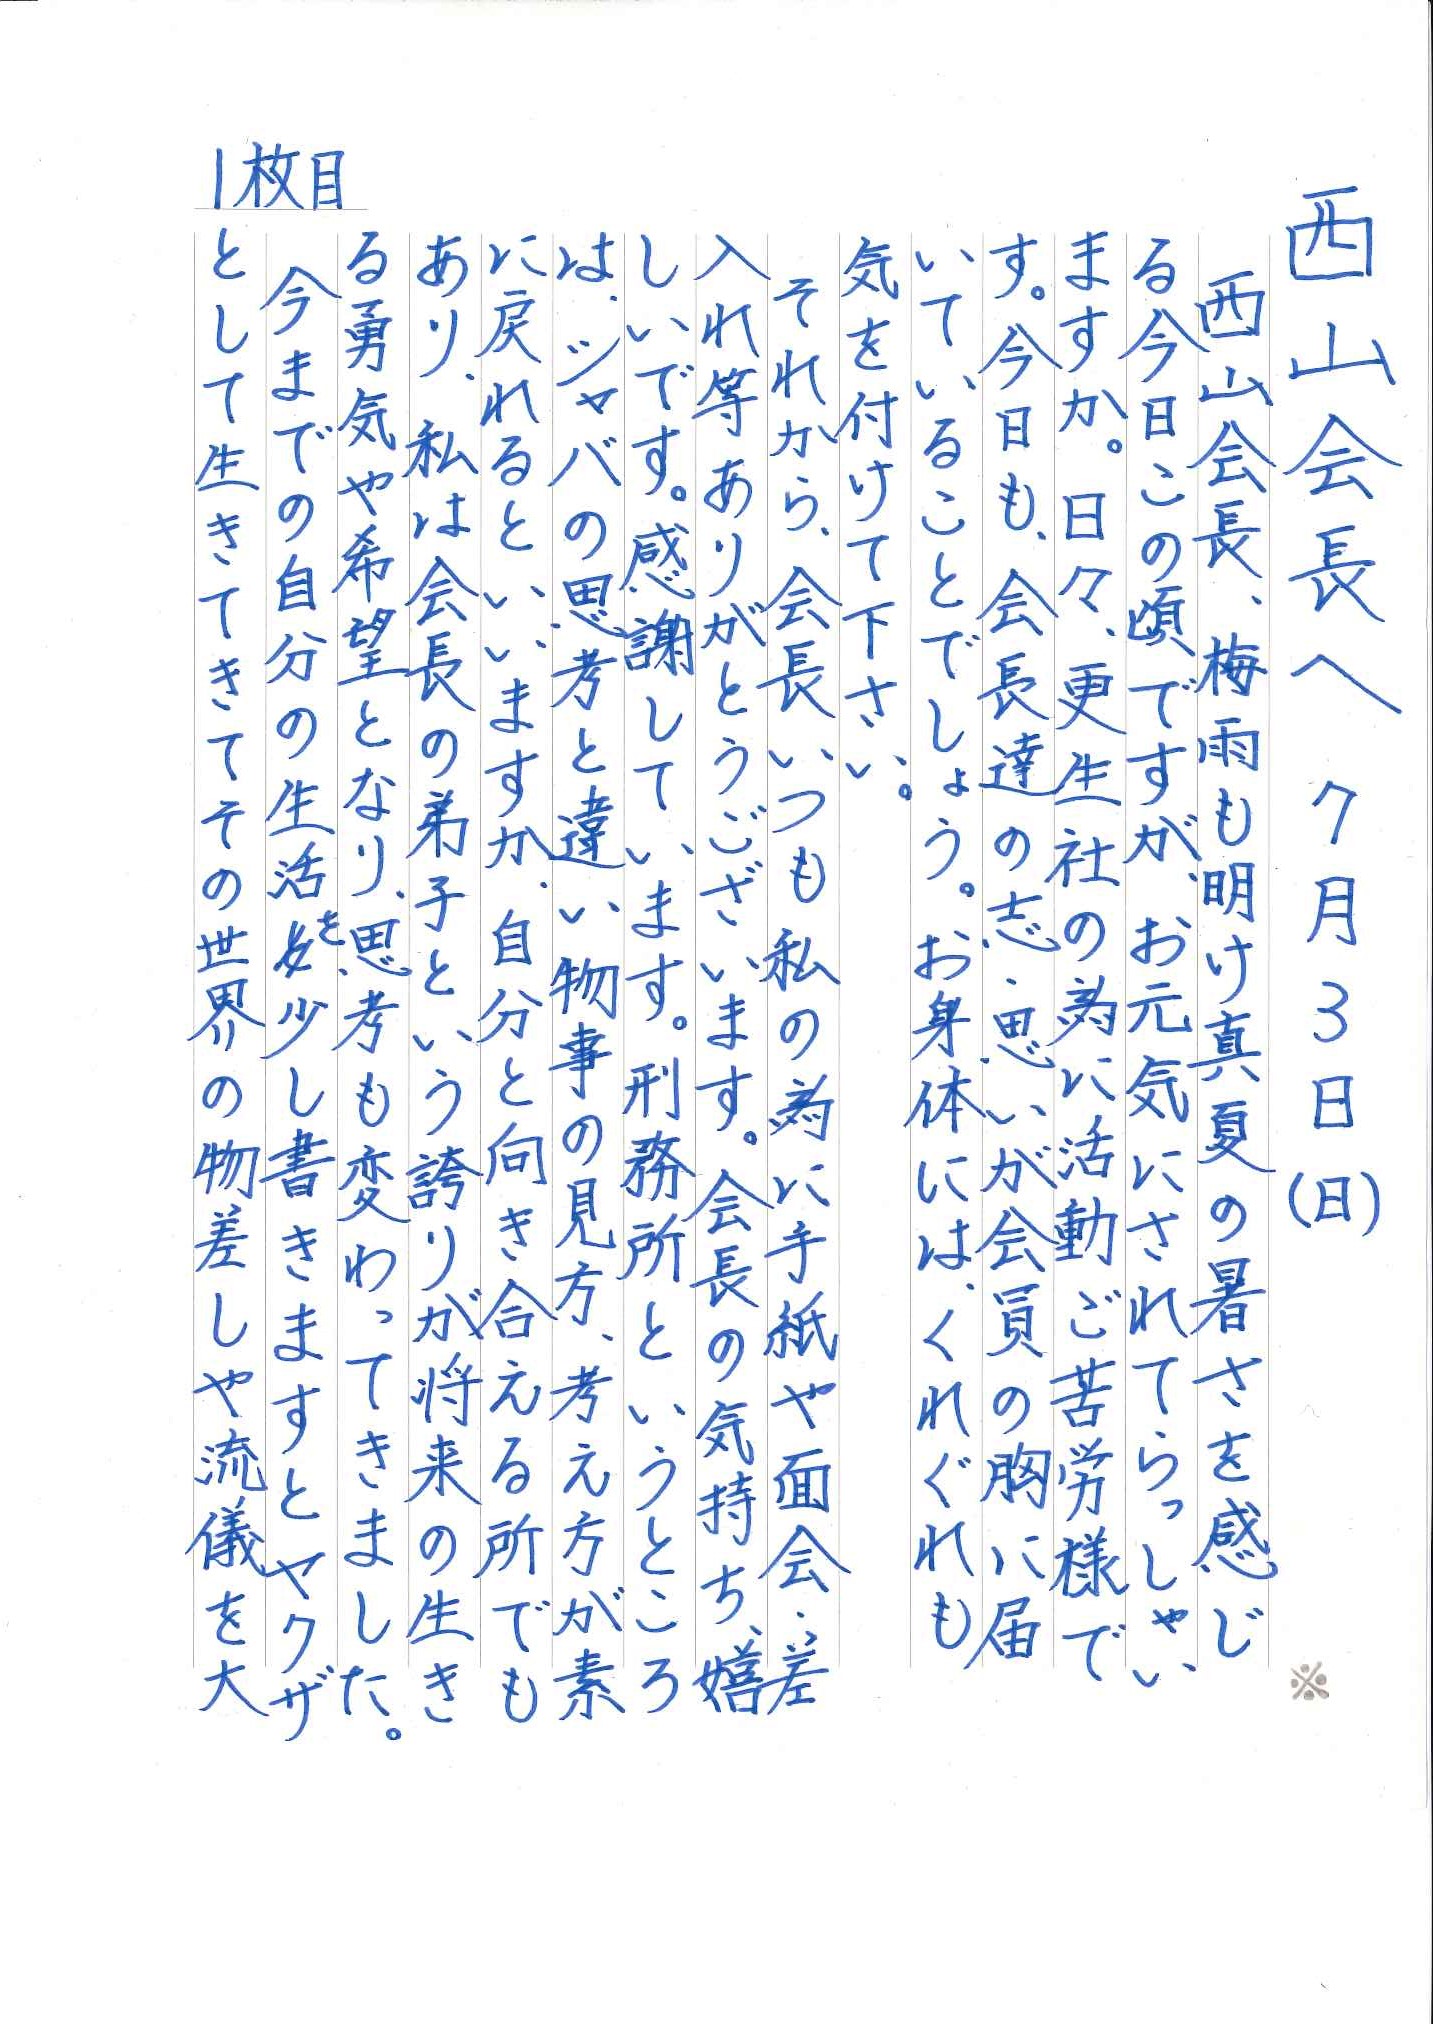 西山会長へ 7月3日(日)
西山会長、梅雨も明け真夏の暑さを感じ
る今日この頃ですが、お元気にされてらっしゃい
ますか。日々、更生社の為に活動ご苦労様で
す。今日も、会長達の志・思いが会員の胸に届
いていることでしょう。お身体には、くれぐれも
気を付けて下さい。
それから、会長いつも私の為に手紙や面会・差
入れ等ありがとうございます。会長の気持ち、嬉
しいです。感謝しています。刑務所というところ
は、シャバの思考と違い物事の見方、考え方が素
に戻れるといいますか、自分と向き合える所でも
あり、私は会長の弟子という誇りが将来の生き
る勇気や希望となり、思考も変わってきました。
今までの自分の生活を少し書きますとヤクザ
として生きてきてその世界の物差しや流儀を大
1枚目
※